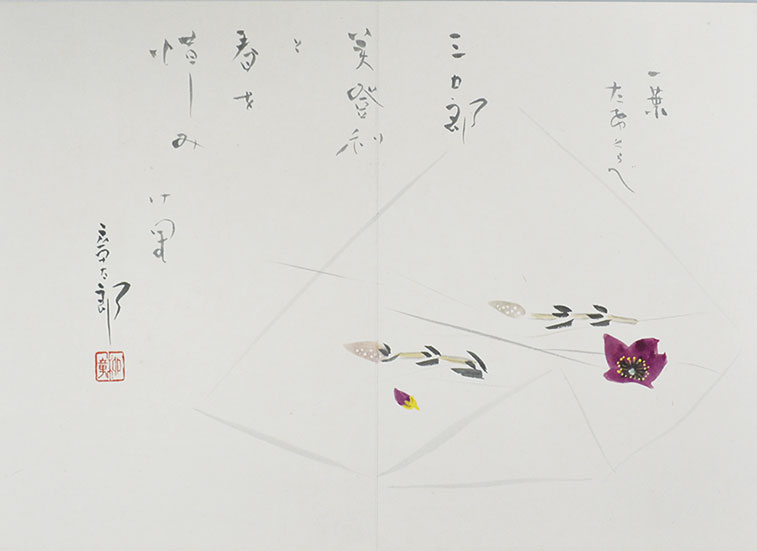 一葉
たけくらべ
三五郎
美登利
と
春を
惜しみ
けり
章太郎